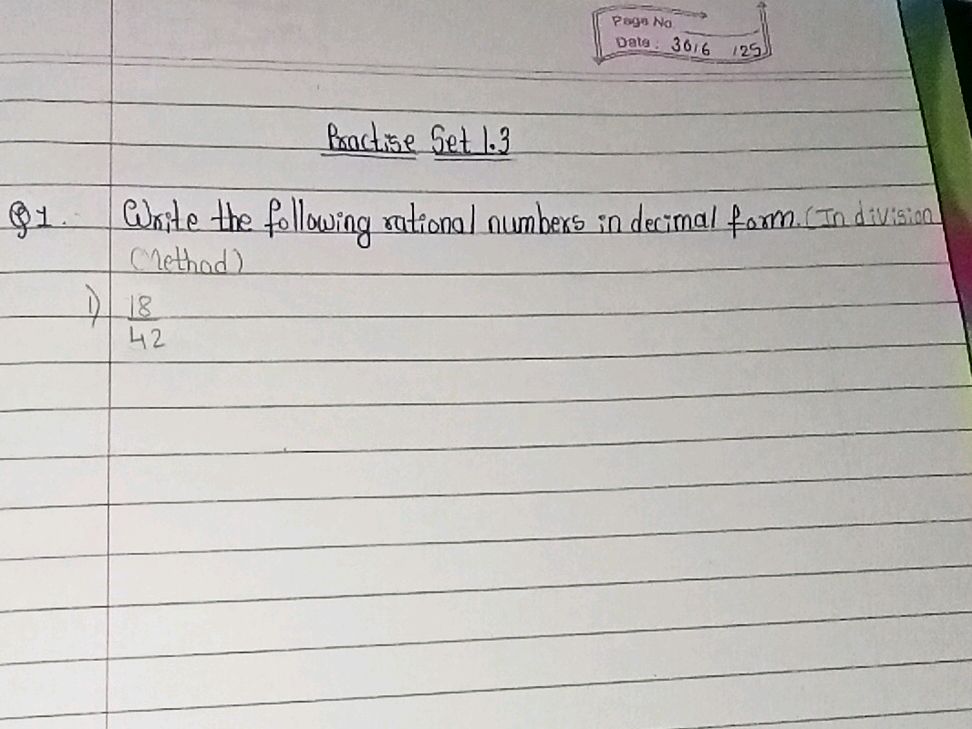 Page No
Date: 30/6 /25
Practise Set 1.3
Q1. Write the following rational numbers in decimal form. (In division
(Method)
i) 18
42